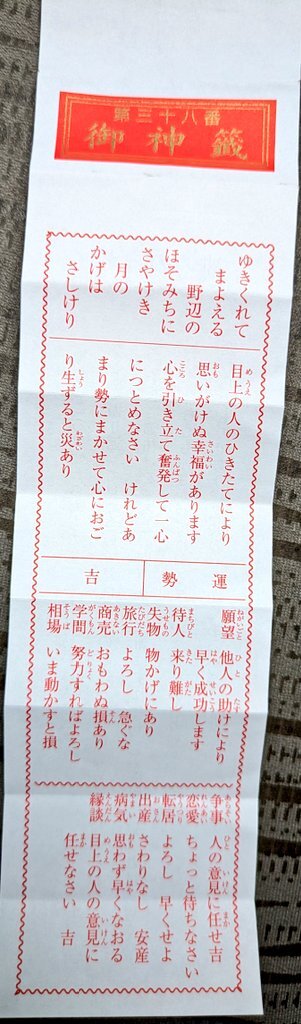 第三十八番
御神籤
ゆきくれて
まよえる
野辺の
ほそみちに
さやけき
月の
かげは
さしけり
目上の人のひきたてにより
思いがけぬ幸福があります
心を引き立て奮発して一心
につとめなさい けれどあ
まり勢にまかせて心におご
り生ずると災あり
運勢 吉
願望 他人の助けにより
早く成功します
待人 来り難し
失物 物かげにあり
旅行 よろし 急ぐな
商売 おもわぬ損あり
学問 努力すればよろし
相場 いま動かすと損
争事 人の意見に任せ吉
恋愛 ちょっと待ちなさい
転居 よろし 早くせよ
出産 さわりなし 安産
病気 思わず早くなおる
縁談 目上の人の意見に
任せなさい 吉